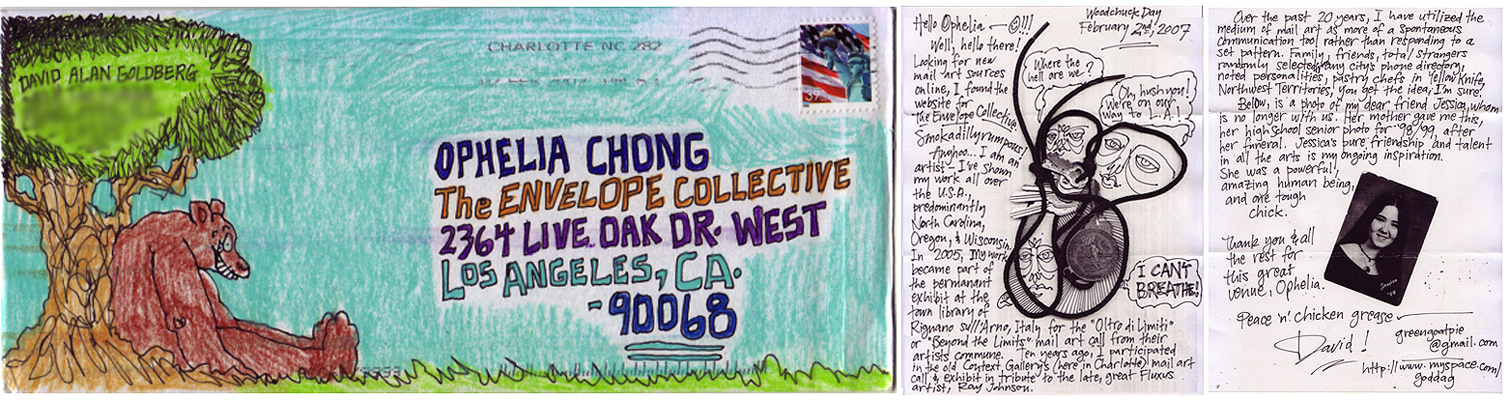 DAVID ALAN GOLDBERG
CHARLOTTE NC 282
OPHELIA CHONG
The ENVELOPE COLLECTIVE
2364 LIVE OAK DR. WEST
LOS ANGELES, CA.
-90068
Woodchuck Day
February 2nd, 2007
Hello Ophelia - ☺!!!
Well, hello there!
Looking for new
mail art sources
online, I found the
website for
the Envelope Collective.
Smokadillyrumpous
Anyhoo... I am an
artist - I've shown
my work all over
the U.S.A.,
predominantly
North Carolina,
Oregon, & Wisconsin.
In 2005, my work
became part of
the permanant
exhibit at the
town library of
Rignano sull'Arno, Italy for the "Oltro di Limiti"
or "Beyond the Limits" mail art call from their
artists commune. Ten years ago, I participated
in the old Context Gallery's (here in Charlotte) mail art
call & exhibit in tribute to the late, great Fluxus
artist, Ray Johnson.
Where the
hell are we?
Oh, hush you!
We're on our
way to L.A.!
I CAN'T
BREATHE!
Over the past 20 years, I have utilized the
medium of mail art as more of a spontaneous
communication tool rather than responding to a
set pattern. Family, friends, total strangers
randomly selected any city's phone directory,
noted personalities, pastry chefs in Yellowknife,
Northwest Territories, you get the idea, I'm sure.
Below, is a photo of my dear friend Jessica, whom
is no longer with us. Her mother gave me this,
her high school senior photo for '98/'99, after
her funeral. Jessica's pure friendship and talent
in all the arts is my ongoing inspiration.
She was a powerful,
amazing human being,
and one tough
chick.
Thank you & all
the rest for
this great
venue, Ophelia.
Peace 'n' chicken grease
David!
greengoatpie
@gmail.com
http://www.myspace.com/
goddag